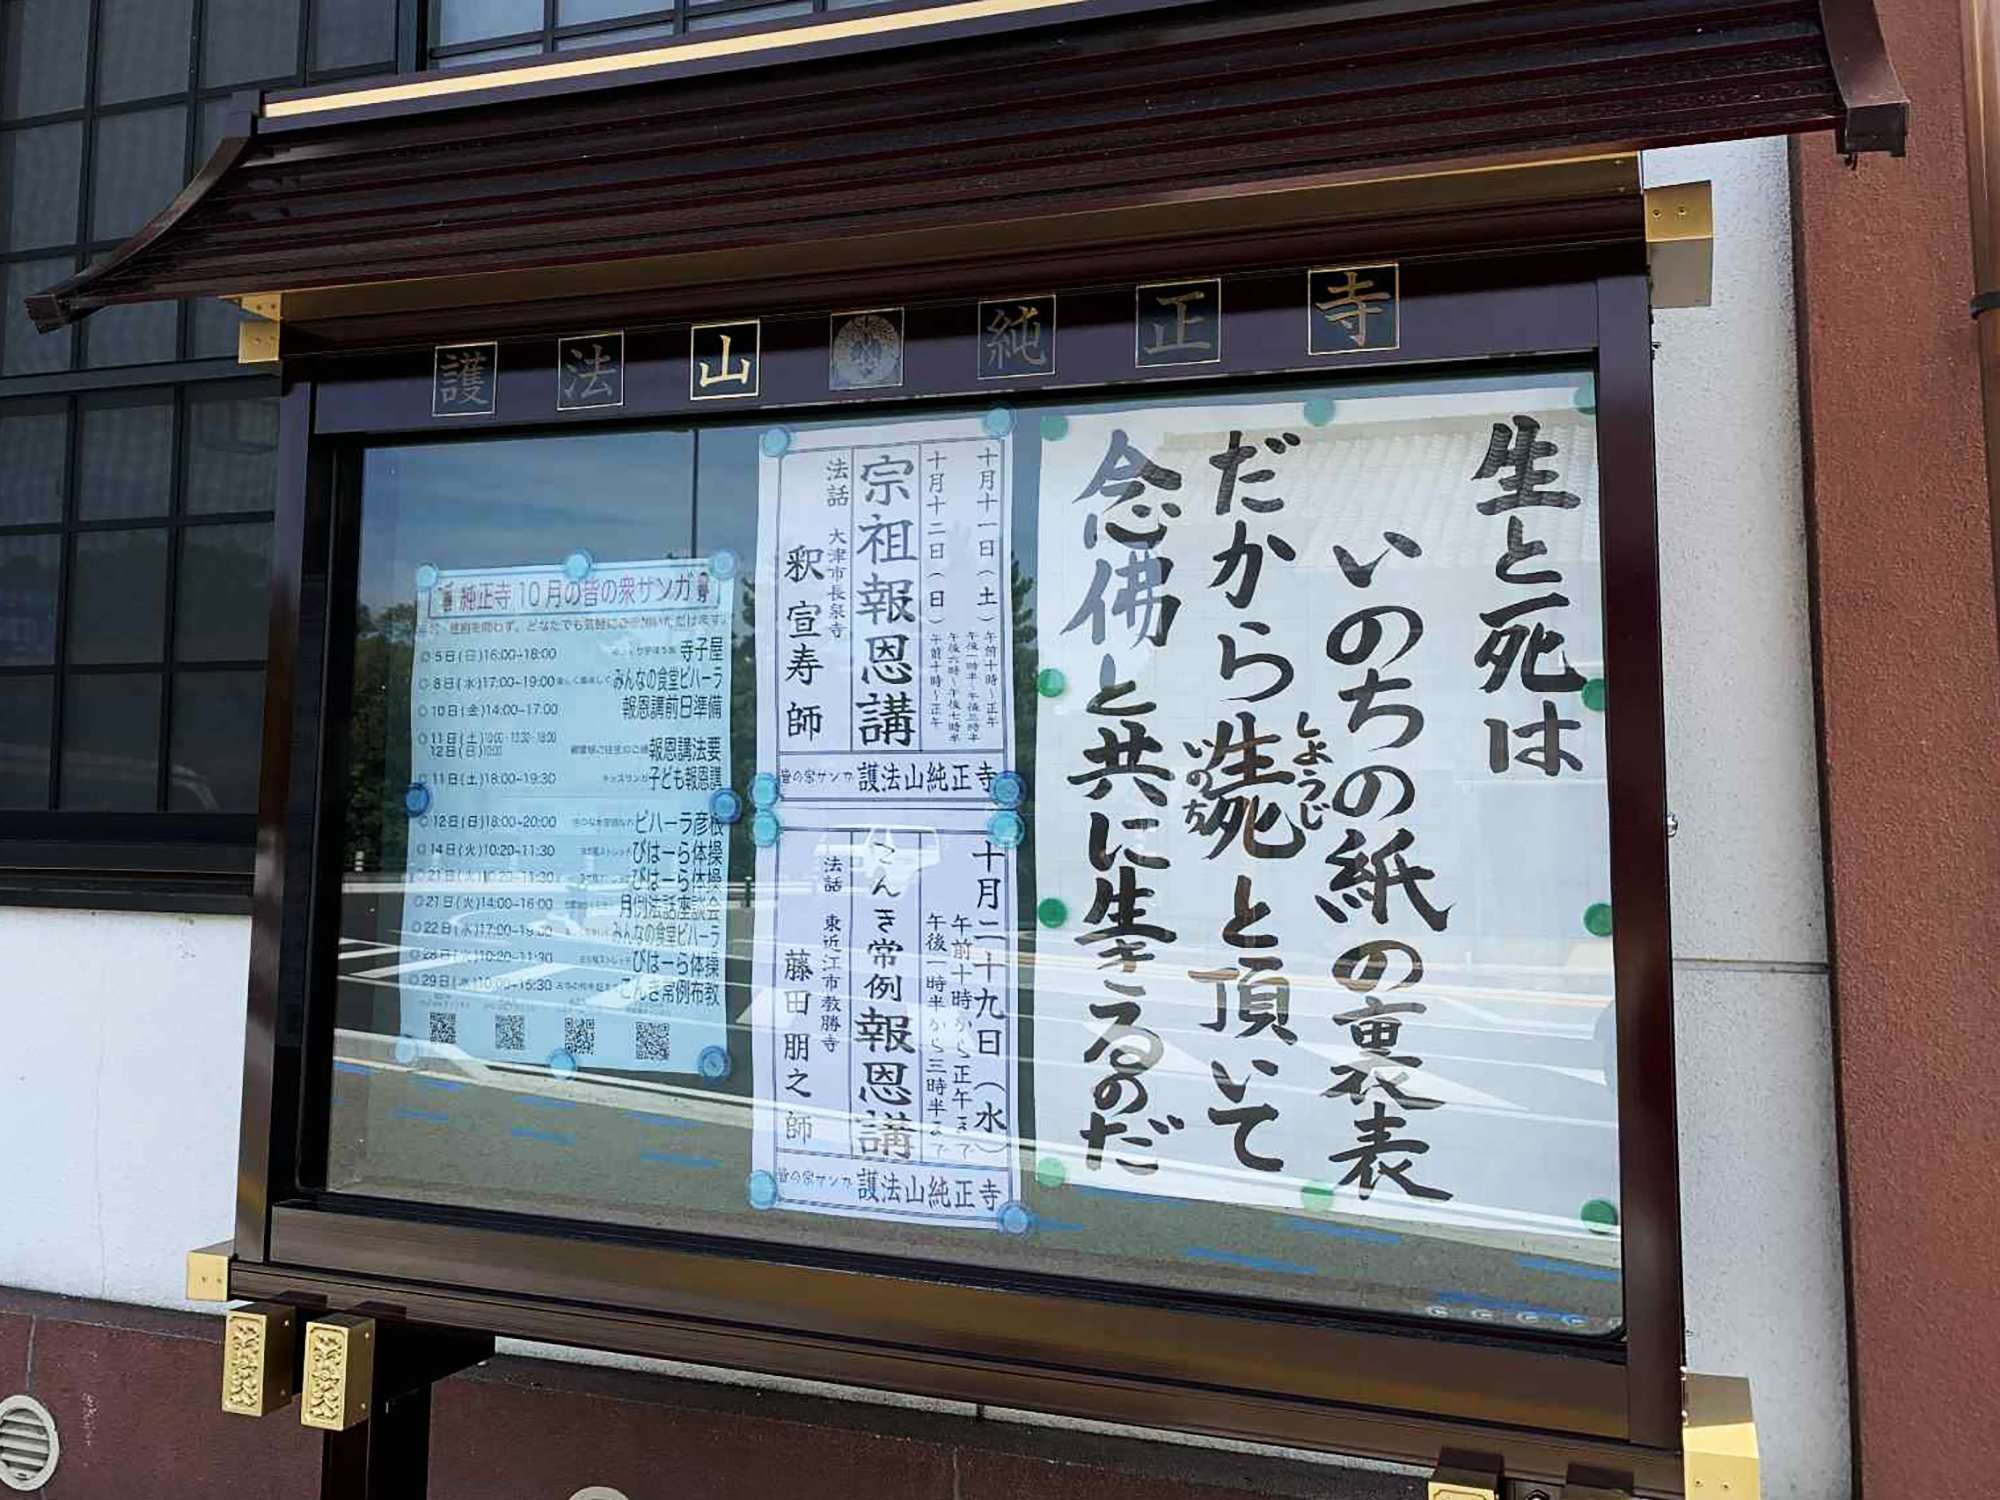 護法山 純正寺
生と死は
いのちの紙の裏表
だから生死と頂いて
しょうじ
いのち
念佛と共に生きるのだ
十月十一日(土)
午前十時~正午
午後一時半~午後三時半
午後六時~午後七時半
十月十二日(日)
午前十時~正午
宗祖報恩講
法話 大津市長泉寺
釈宣寿師
皆の衆サンガ 護法山純正寺
十月二十九日(水)
午前十時から正午まで
午後一時半から三時半まで
ごんき常例報恩講
法話 東近江市教勝寺
藤田朋之師
皆の衆サンガ 護法山純正寺
純正寺10月の皆の衆サンガ
どなたでも気軽にご参加いただけます。
◎5日(日)16:00~18:00 寺子屋
◎8日(水)17:00~19:00 みんなの食堂ビハーラ
◎10日(金)14:00~17:00 報恩講前日準備
◎11日(土)
12日(日) 報恩講法要
◎11日(土)18:00~19:30 キッズサンガ 子ども報恩講
◎12日(日)18:00~20:00 ビハーラ彦根
◎14日(火)10:20~11:30 びはーら体操
◎21日(火)10:20~11:30 びはーら体操
◎21日(火)14:00~16:00 月例法話座談会
◎22日(水)17:00~19:00 みんなの食堂ビハーラ
◎28日(火)10:20~11:30 びはーら体操
◎29日(水)10:00~15:30 ごんき常例布教